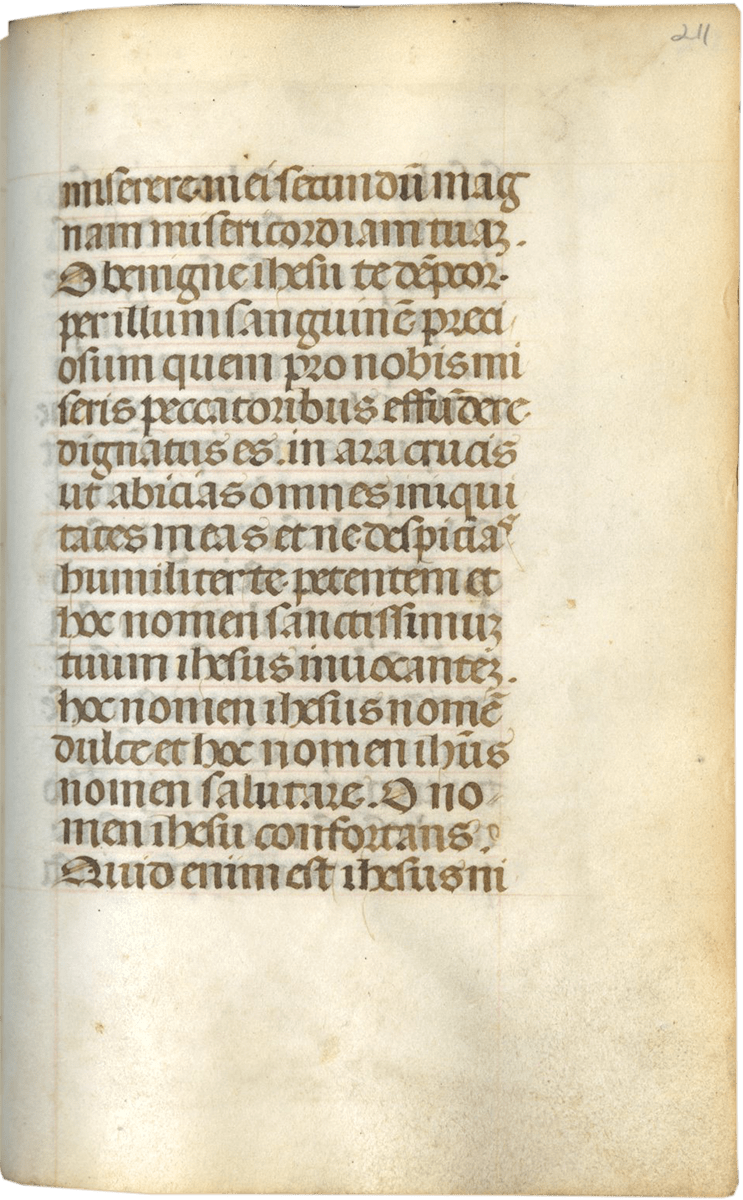 211
miserere mei secundū mag
nam misericordiam tuaꝫ.
O benigne ihesu te dep̄cor.
per illum sanguinē preci
osum quem pro nobis mi
seris peccatoribus effūdere
dignatus es. in ara crucis
ut abicias omnes iniqui
tates meas et ne despicias
humiliter te petentem et
hoc nomen sanctissimuꝫ
tuum ihesus inuocanteꝫ.
hoc nomen ihesus nomē
dulce et hoc nomen ihūs
nomen salutare. O no
men ihesu confortans.
Quid enim est ihesus ni